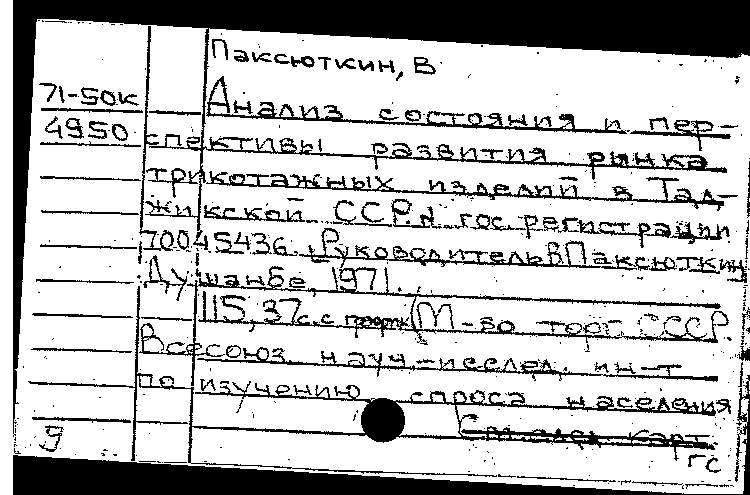 Паксюткин, В
71-50к
4950
Анализ состояния и пер-
спективы развития рынка
трикотажных изделий в Тад-
жикской ССР. № гос. регистрации
70045436. Руководитель В Паксюткин
Душанбе, 1971.
115, 37с. с. график (М-во торг. СССР.
Всесоюз. науч.-исслед. ин-т
по изучению спроса населения
См. след. карт.
9
гс